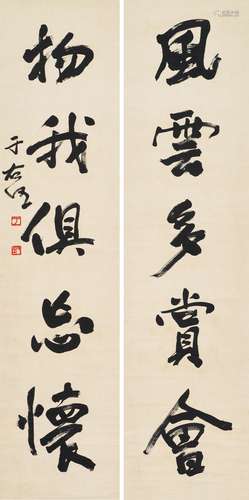 風雲多賞會
物我俱忘懷
于右任